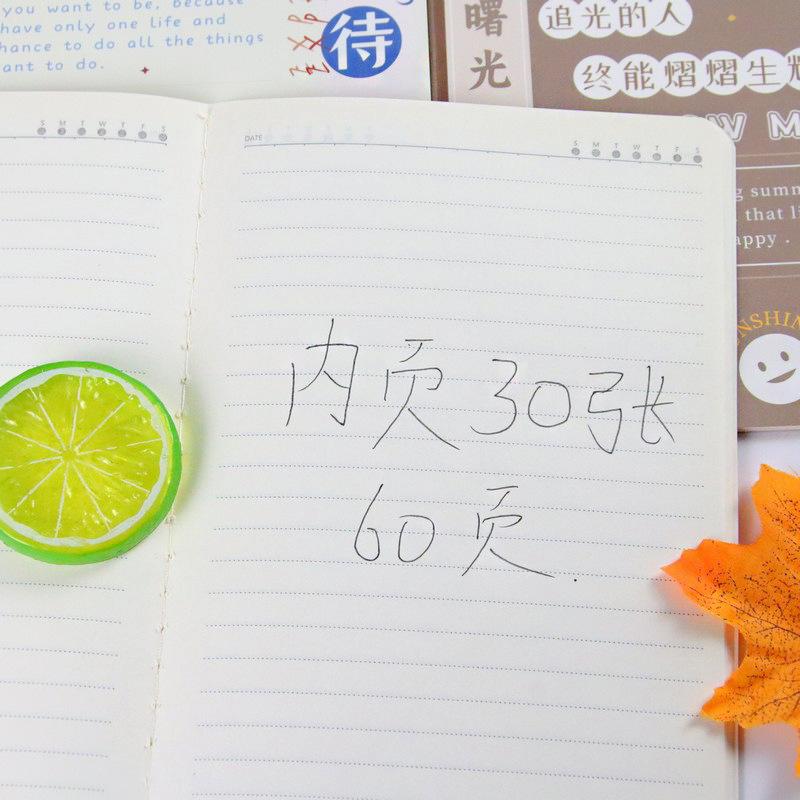 you want to be, because
have only one life and
chance to do all the things
ant to do.
待
曙光
追光的人
终能熠熠生辉
S M T W T F S
DATE
S M T W T F S
g summ
that li
appy .
NSHIN
内页30张
60页.